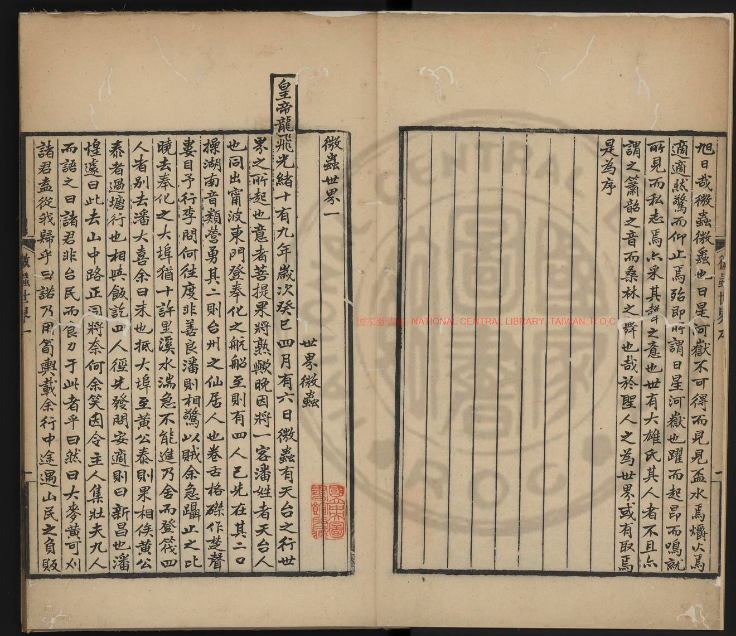 旭日哉微蟲微蟲也日星河嶽不可得而見見盃水焉爝火焉
適適然驚而仰止焉殆即所謂日星河嶽也躍而起昂而鳴就
所見而私志焉亦采其聲之意也世有大雄氏其人者不且亦
謂之簫韶之音而桑林之舞也哉於聖人之為世界或有取焉
是為序
微蟲世界一
世界微蟲
皇帝龍飛光緒十有九年歲次癸巳四月有六日微蟲有天台之行世
界之所起也意者菩提果將熟歟晚因將一客潘姓者天台人
也同出甯波東門登奉化之航船至則有四人已先在其二口
操湖南音類營勇其二則台州之仙居人也卷舌格磔作楚聲
婁目予行李問何往度非善良潘則相驚以賊余急躡止之比
曉去奉化之大埠猶十許里溪水湍急不能進乃舍而登筏四
人者別去潘大喜余曰未也抵大埠至黃公泰則果相俟黃公
泰者過塘行也相與飯訖四人徑先發問安適則曰新昌也潘
惶遽曰此去山中路正同將奈何余笑因令主人集壯夫九人
而語之曰諸君非台民而食力于此者乎曰然曰大麥黃可刈
諸君盍從我歸乎曰諾乃用筍輿載余行中途遇山民之負販
微蟲世界一
NATIONAL CENTRAL LIBRARY, TAIWAN, R.O.C.